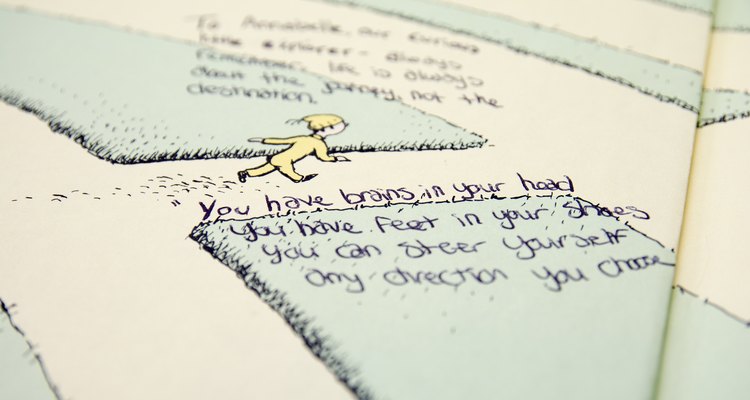 To Annabelle, our curious
little explorer - always
remember, life is always
about the journey, not the
destination.
You have brains in your head
You have feet in your shoes
you can steer yourself
any direction you choose